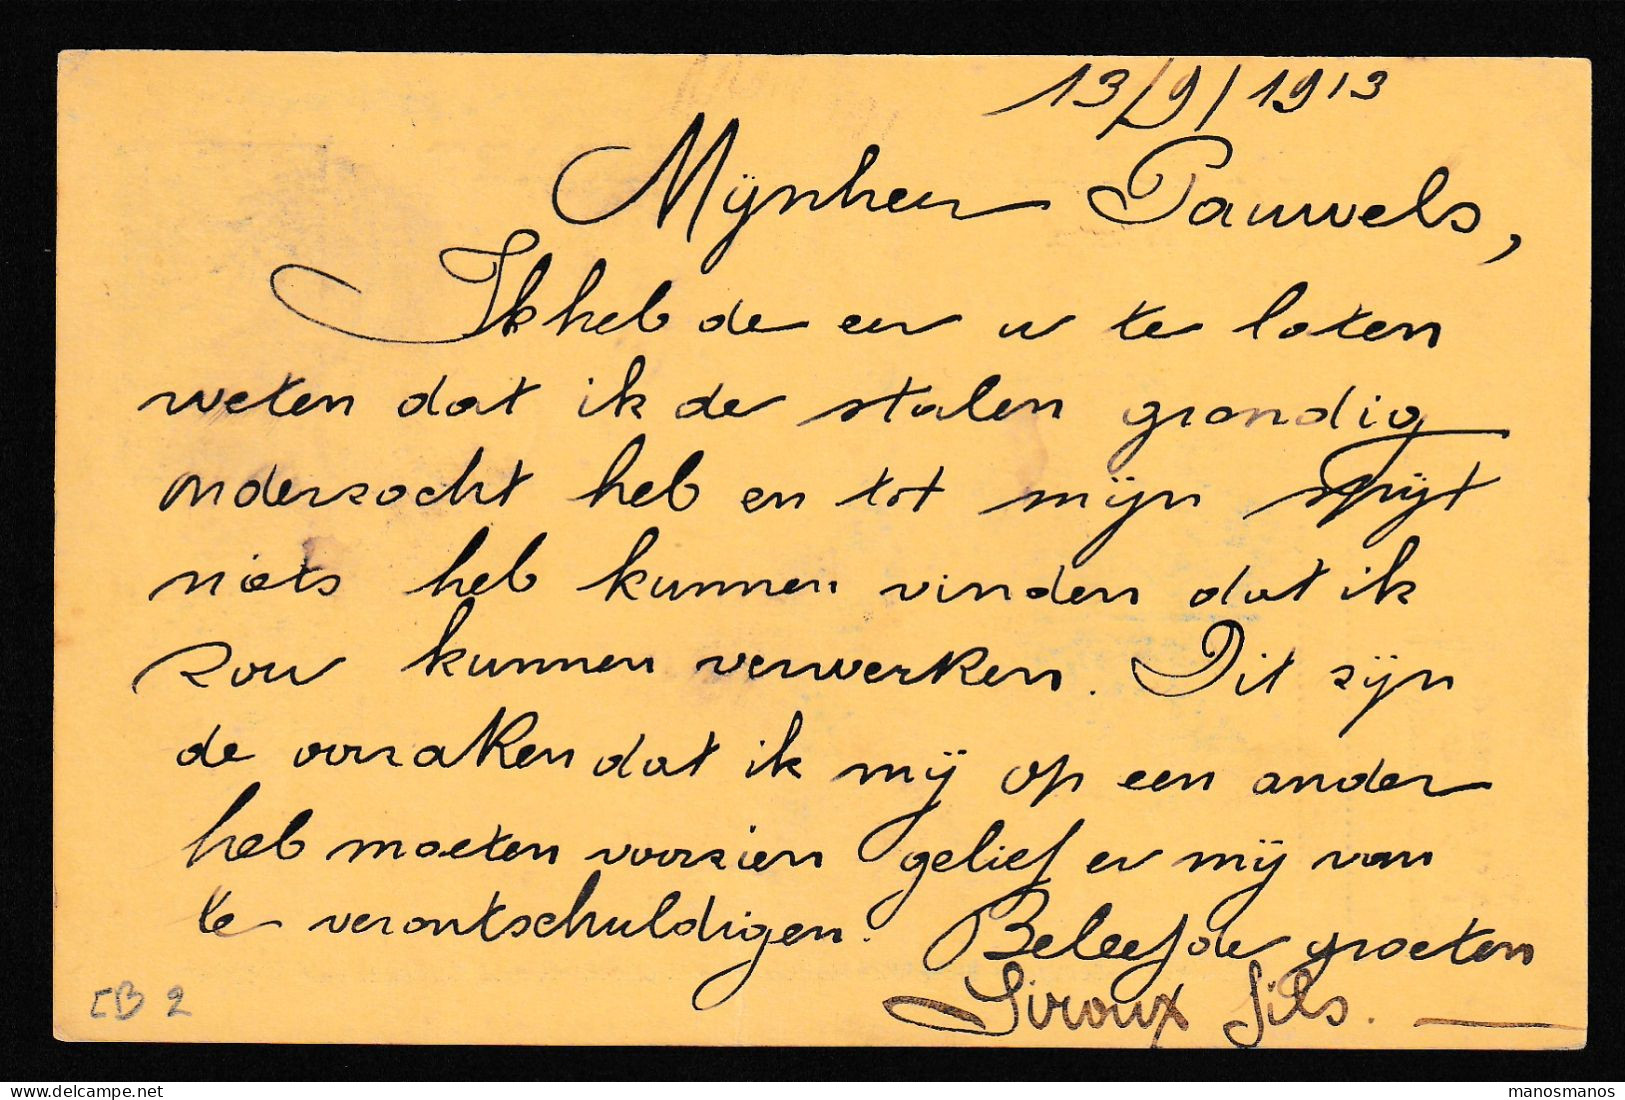 13/9/1913
Mÿnheer Pauwels,
Ik heb de eer u te laten
weten dat ik de stalen grondig
onderzocht heb en tot mijn spijt
niets heb kunnen vinden dat ik
zou kunnen verwerken. Dit zijn
de oorzaken dat ik mij op een ander
heb moeten voorzien gelief er mij van
te verontschuldigen. Beleefde groeten
Siroux fils.
CB 2
manosmanos